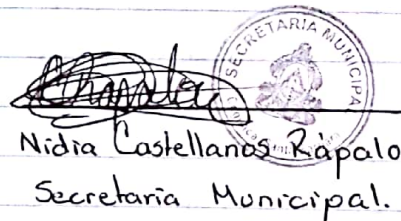 SECRETARIA MUNICIPA
Nidia Castellanos Rápalo
Secretaria Municipal.